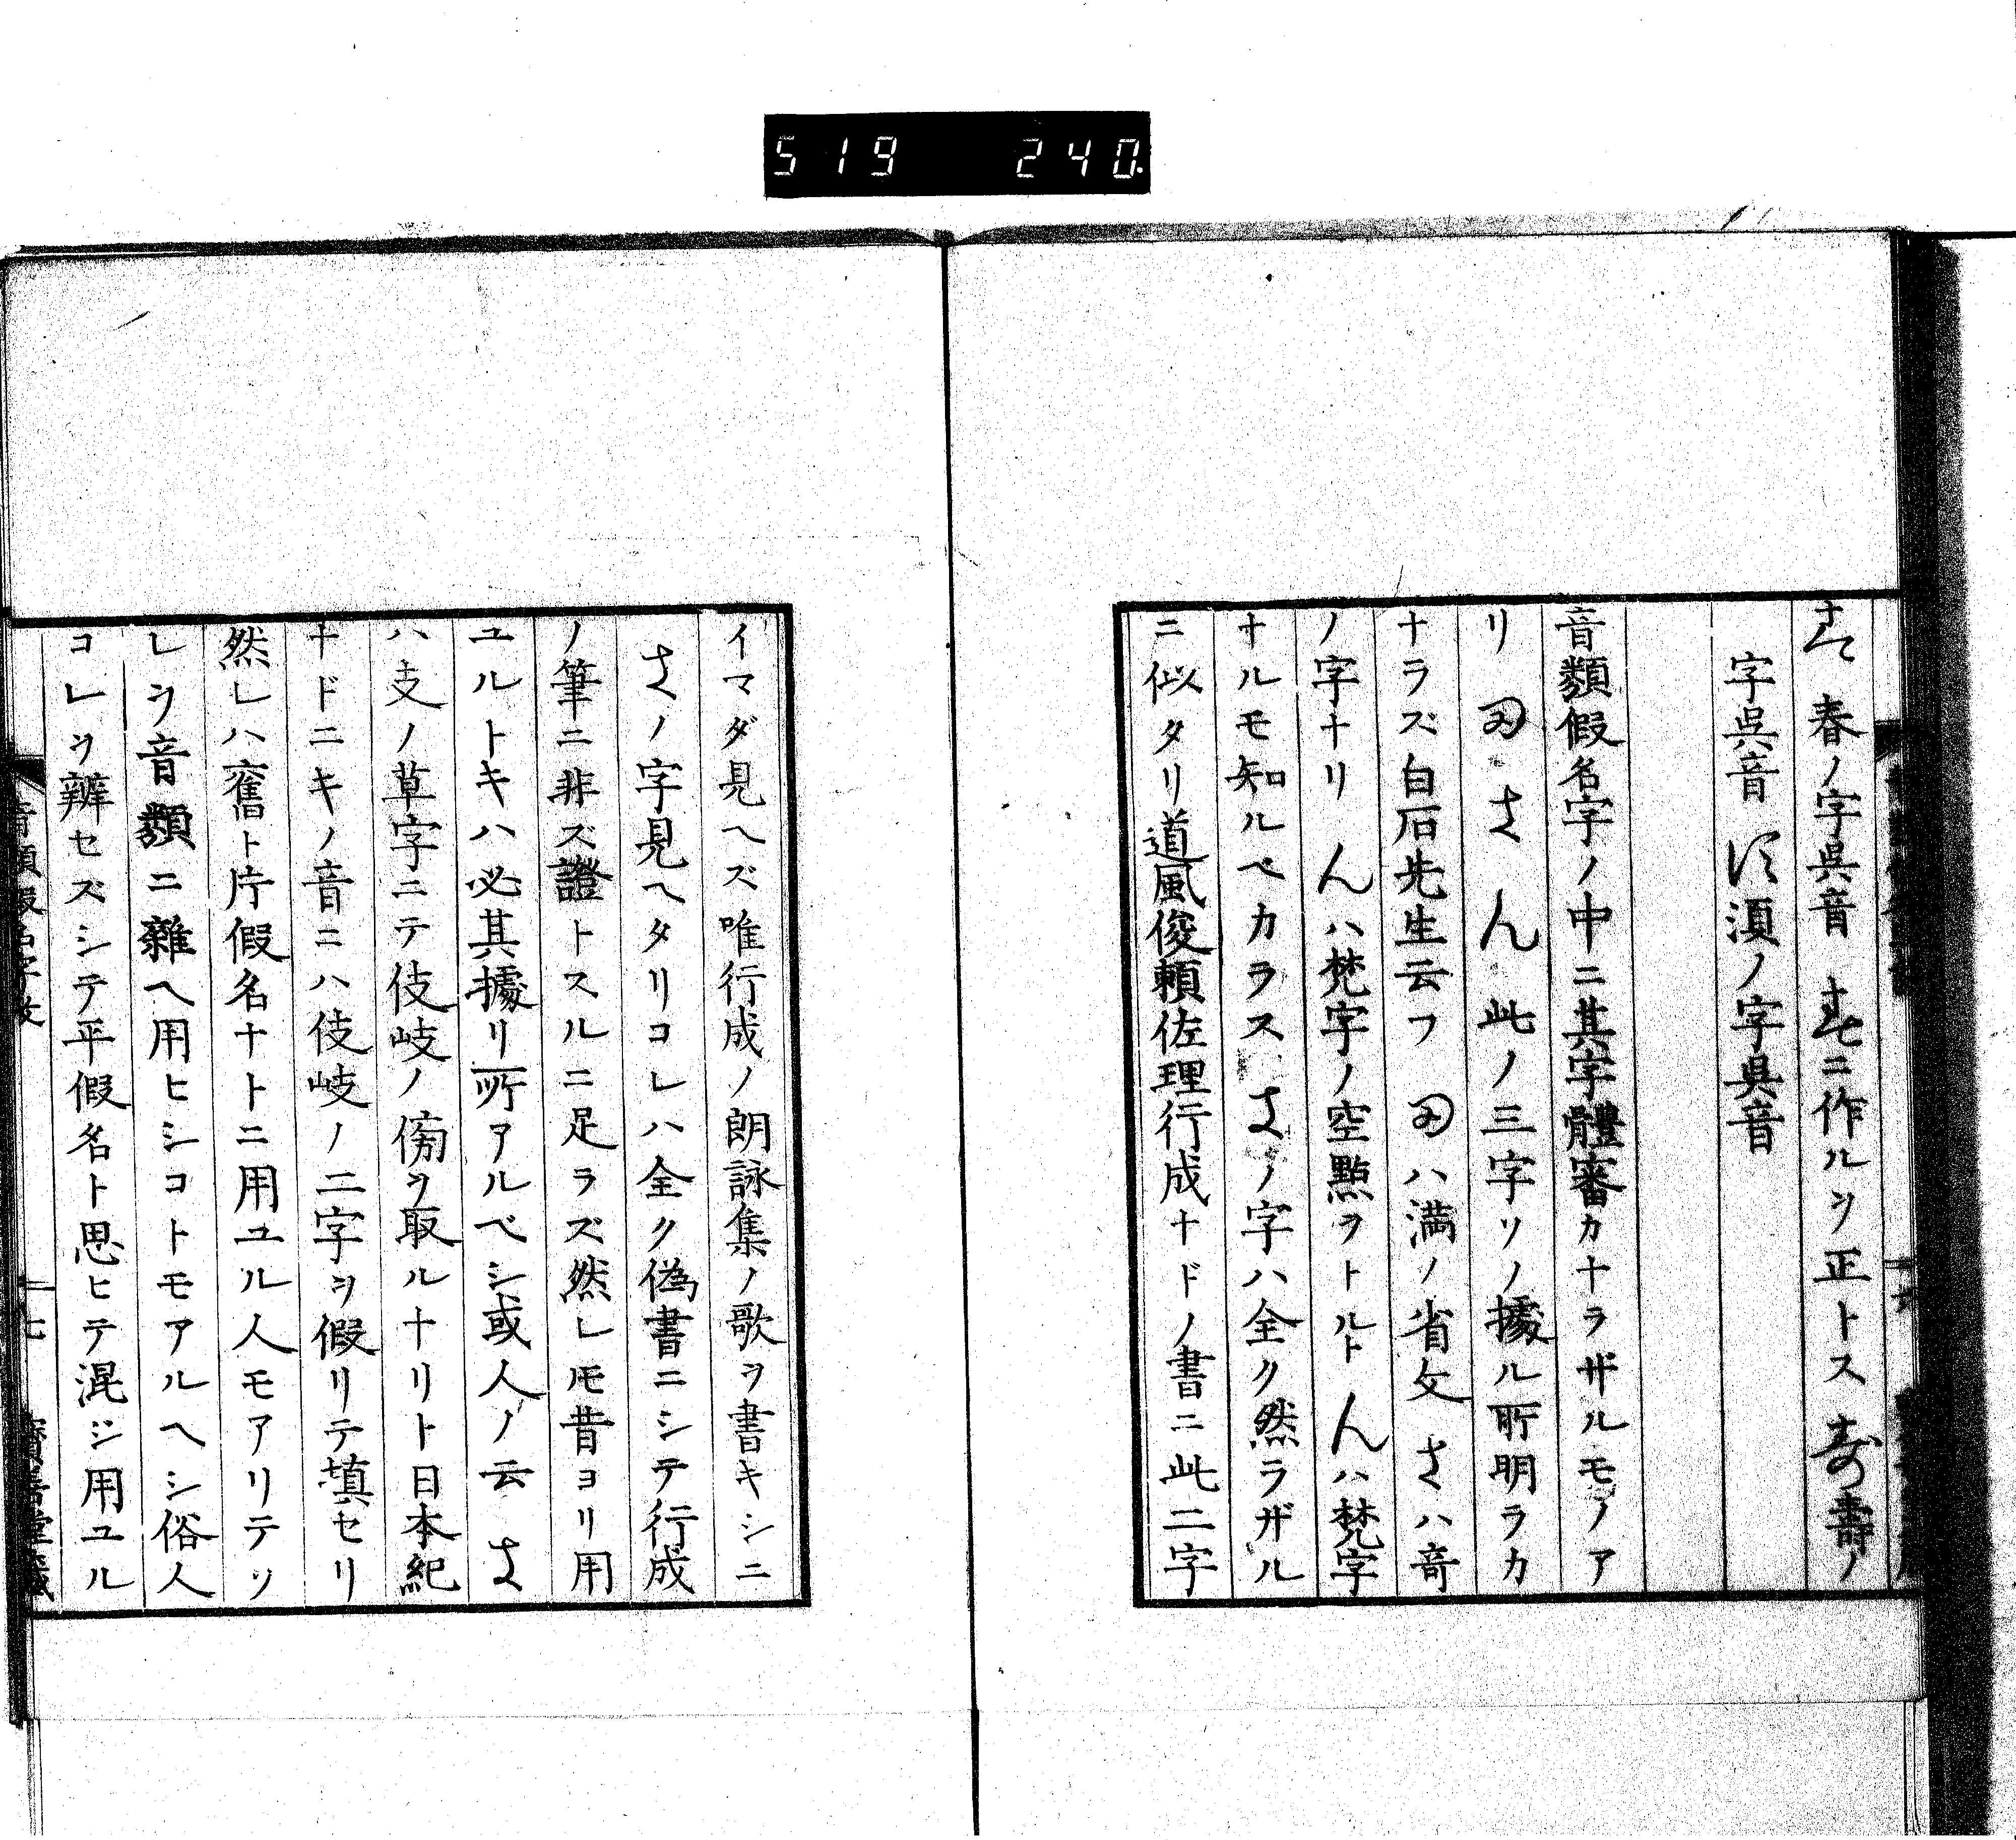 519 240.
春ノ字呉音 ニ作ルヲ正トス 壽ノ
字呉音 須ノ字呉音
音類假名字ノ中ニ其字體審カナラザルモノア
リ さ ん 此ノ三字ソノ據ル所明ラカ
ナラズ白石先生云フ ハ満ノ省文 さハ奇
ノ字ナリ んハ梵字ノ空點ヲトルト んハ梵字
ナルモ知ルベカラス さノ字ハ全ク然ラザル
ニ似タリ道風俊頼佐理行成ナドノ書ニ此二字
イマダ見ヘズ唯行成ノ朗詠集ノ歌ヲ書キシニ
さノ字見ヘタリコレハ全ク偽書ニシテ行成
ノ筆ニ非ズ證トスルニ足ラズ然レ𪜈昔ヨリ用
ユルトキハ必其據リ所アルベシ或人ノ云 さ
ハ支ノ草字ニテ伎岐ノ傍ヲ取ルナリト日本紀
ナドニキノ音ニハ伎岐ノ二字ヲ假リテ填セリ
然レハ舊ト片假名ナトニ用ユル人モアリテソ
レヲ音類ニ雜ヘ用ヒシコトモアルヘシ俗人
コレヲ辨セズシテ平假名ト思ヒテ混ジ用ユル
音類假名字攷
十七